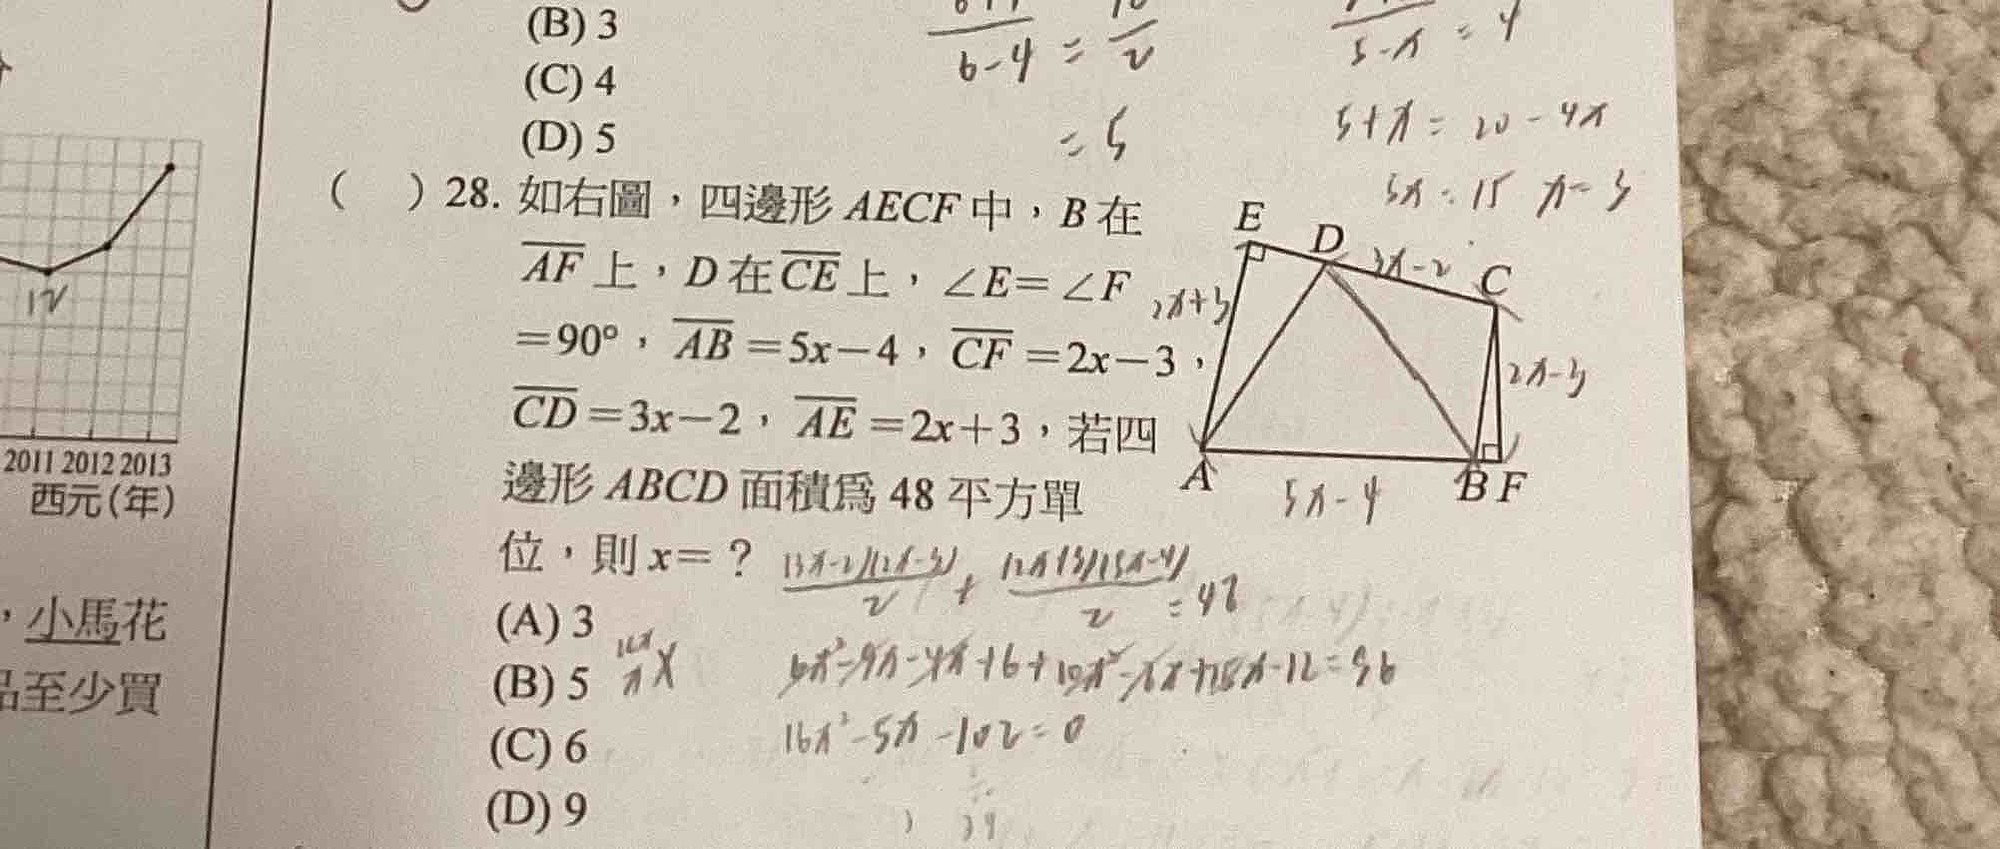 (B) 3
(C) 4
(D) 5
6-4 = 2
= 5
5-x = 4
5+x = 20-4x
5x = 15 x=3
( ) 28. 如右圖，四邊形 AECF 中，B 在
AF 上，D 在 CE 上，∠E=∠F
=90°，AB=5x-4，CF=2x-3，
CD=3x-2，AE=2x+3，若四
邊形 ABCD 面積為 48 平方單
位，則 x=？
(A) 3
(B) 5
(C) 6
(D) 9
E
D
3x-2
C
2x+3
2x-3
A
5x-4
B F
(3x-2)(2x-3)/2 + (2x+3)(5x-4)/2 = 48
6x²-9x-4x+6+10x²-8x+15x-12=96
16x²-5x-102=0
12
2011 2012 2013
西元(年)
，小馬花
品至少買